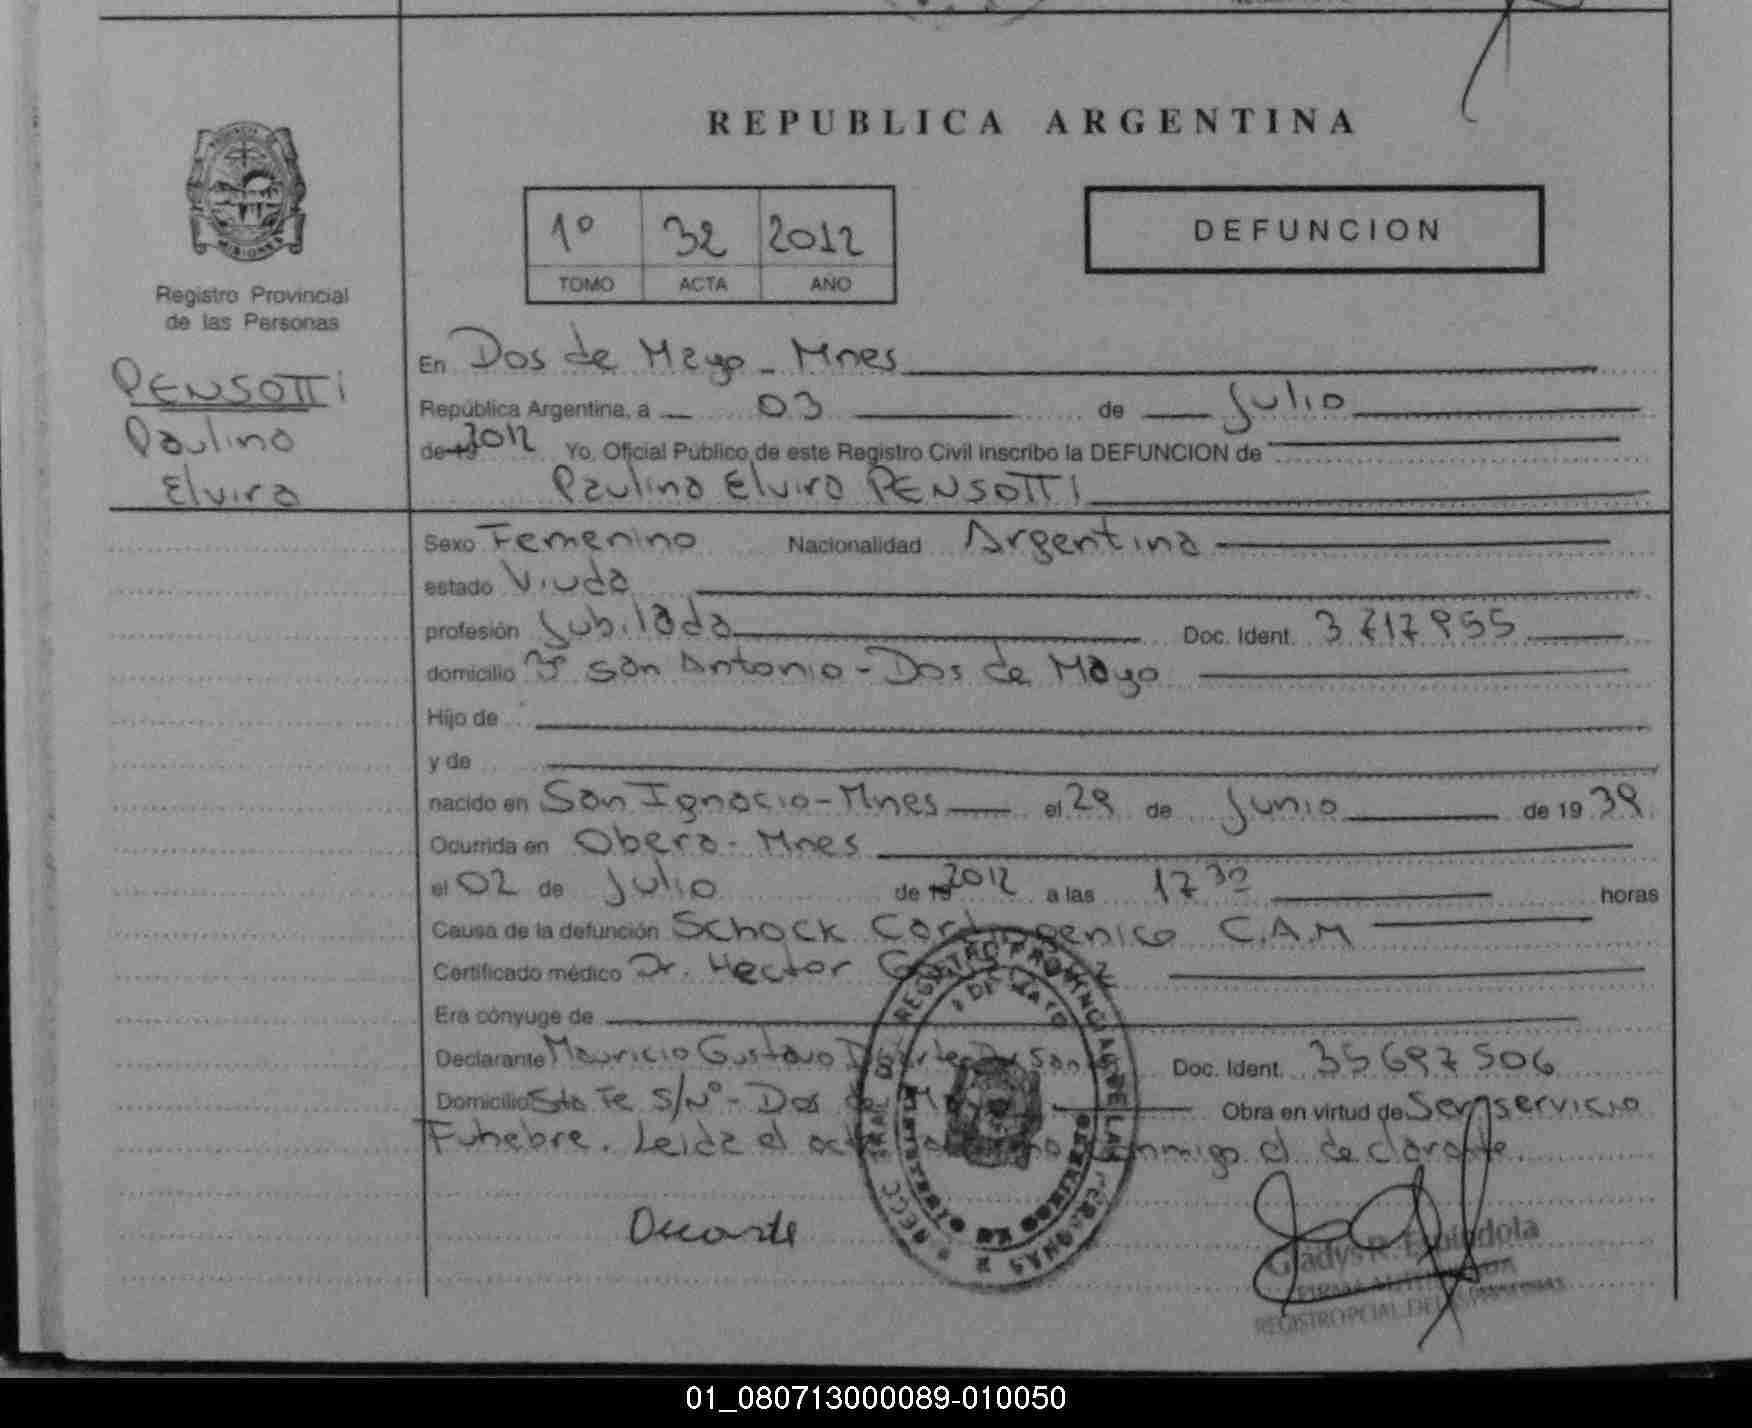 REPUBLICA ARGENTINA
1º 32 2012
TOMO ACTA AÑO
DEFUNCION
MISIONES
Registro Provincial
de las Personas
PENSOTTI
Paulina
Elvira
En Dos de Mayo - Mnes
República Argentina, a 03 de Julio
de 19 2012 Yo, Oficial Público de este Registro Civil inscribo la DEFUNCION de
Paulina Elvira PENSOTTI
Sexo Femenino Nacionalidad Argentina
estado Viuda
profesión Jubilada Doc. Ident. 3717955
domicilio Bº San Antonio - Dos de Mayo
Hijo de
y de
nacido en San Ignacio - Mnes el 29 de Junio de 19 39
Ocurrida en Obera - Mnes
el 02 de Julio de 19 2012 a las 17 30 horas
Causa de la defunción Schock Cardiogenico C.A.M
Certificado médico Dr. Hector
Era cónyuge de
Declarante Mauricio Gustavo Doc. Ident. 35697506
Domicilio Sta Fe S/Nº - Dos de Obra en virtud de Ser servicio
Funebre. Leida el acta conmigo el declarante.
REGISTRO PROVINCIAL DE LAS PERSONAS
Duarte
Gladys R. Espindola
FIRMA AUTORIZADA
REGISTRO PCIAL. DE LAS PERSONAS
01_080713000089-010050